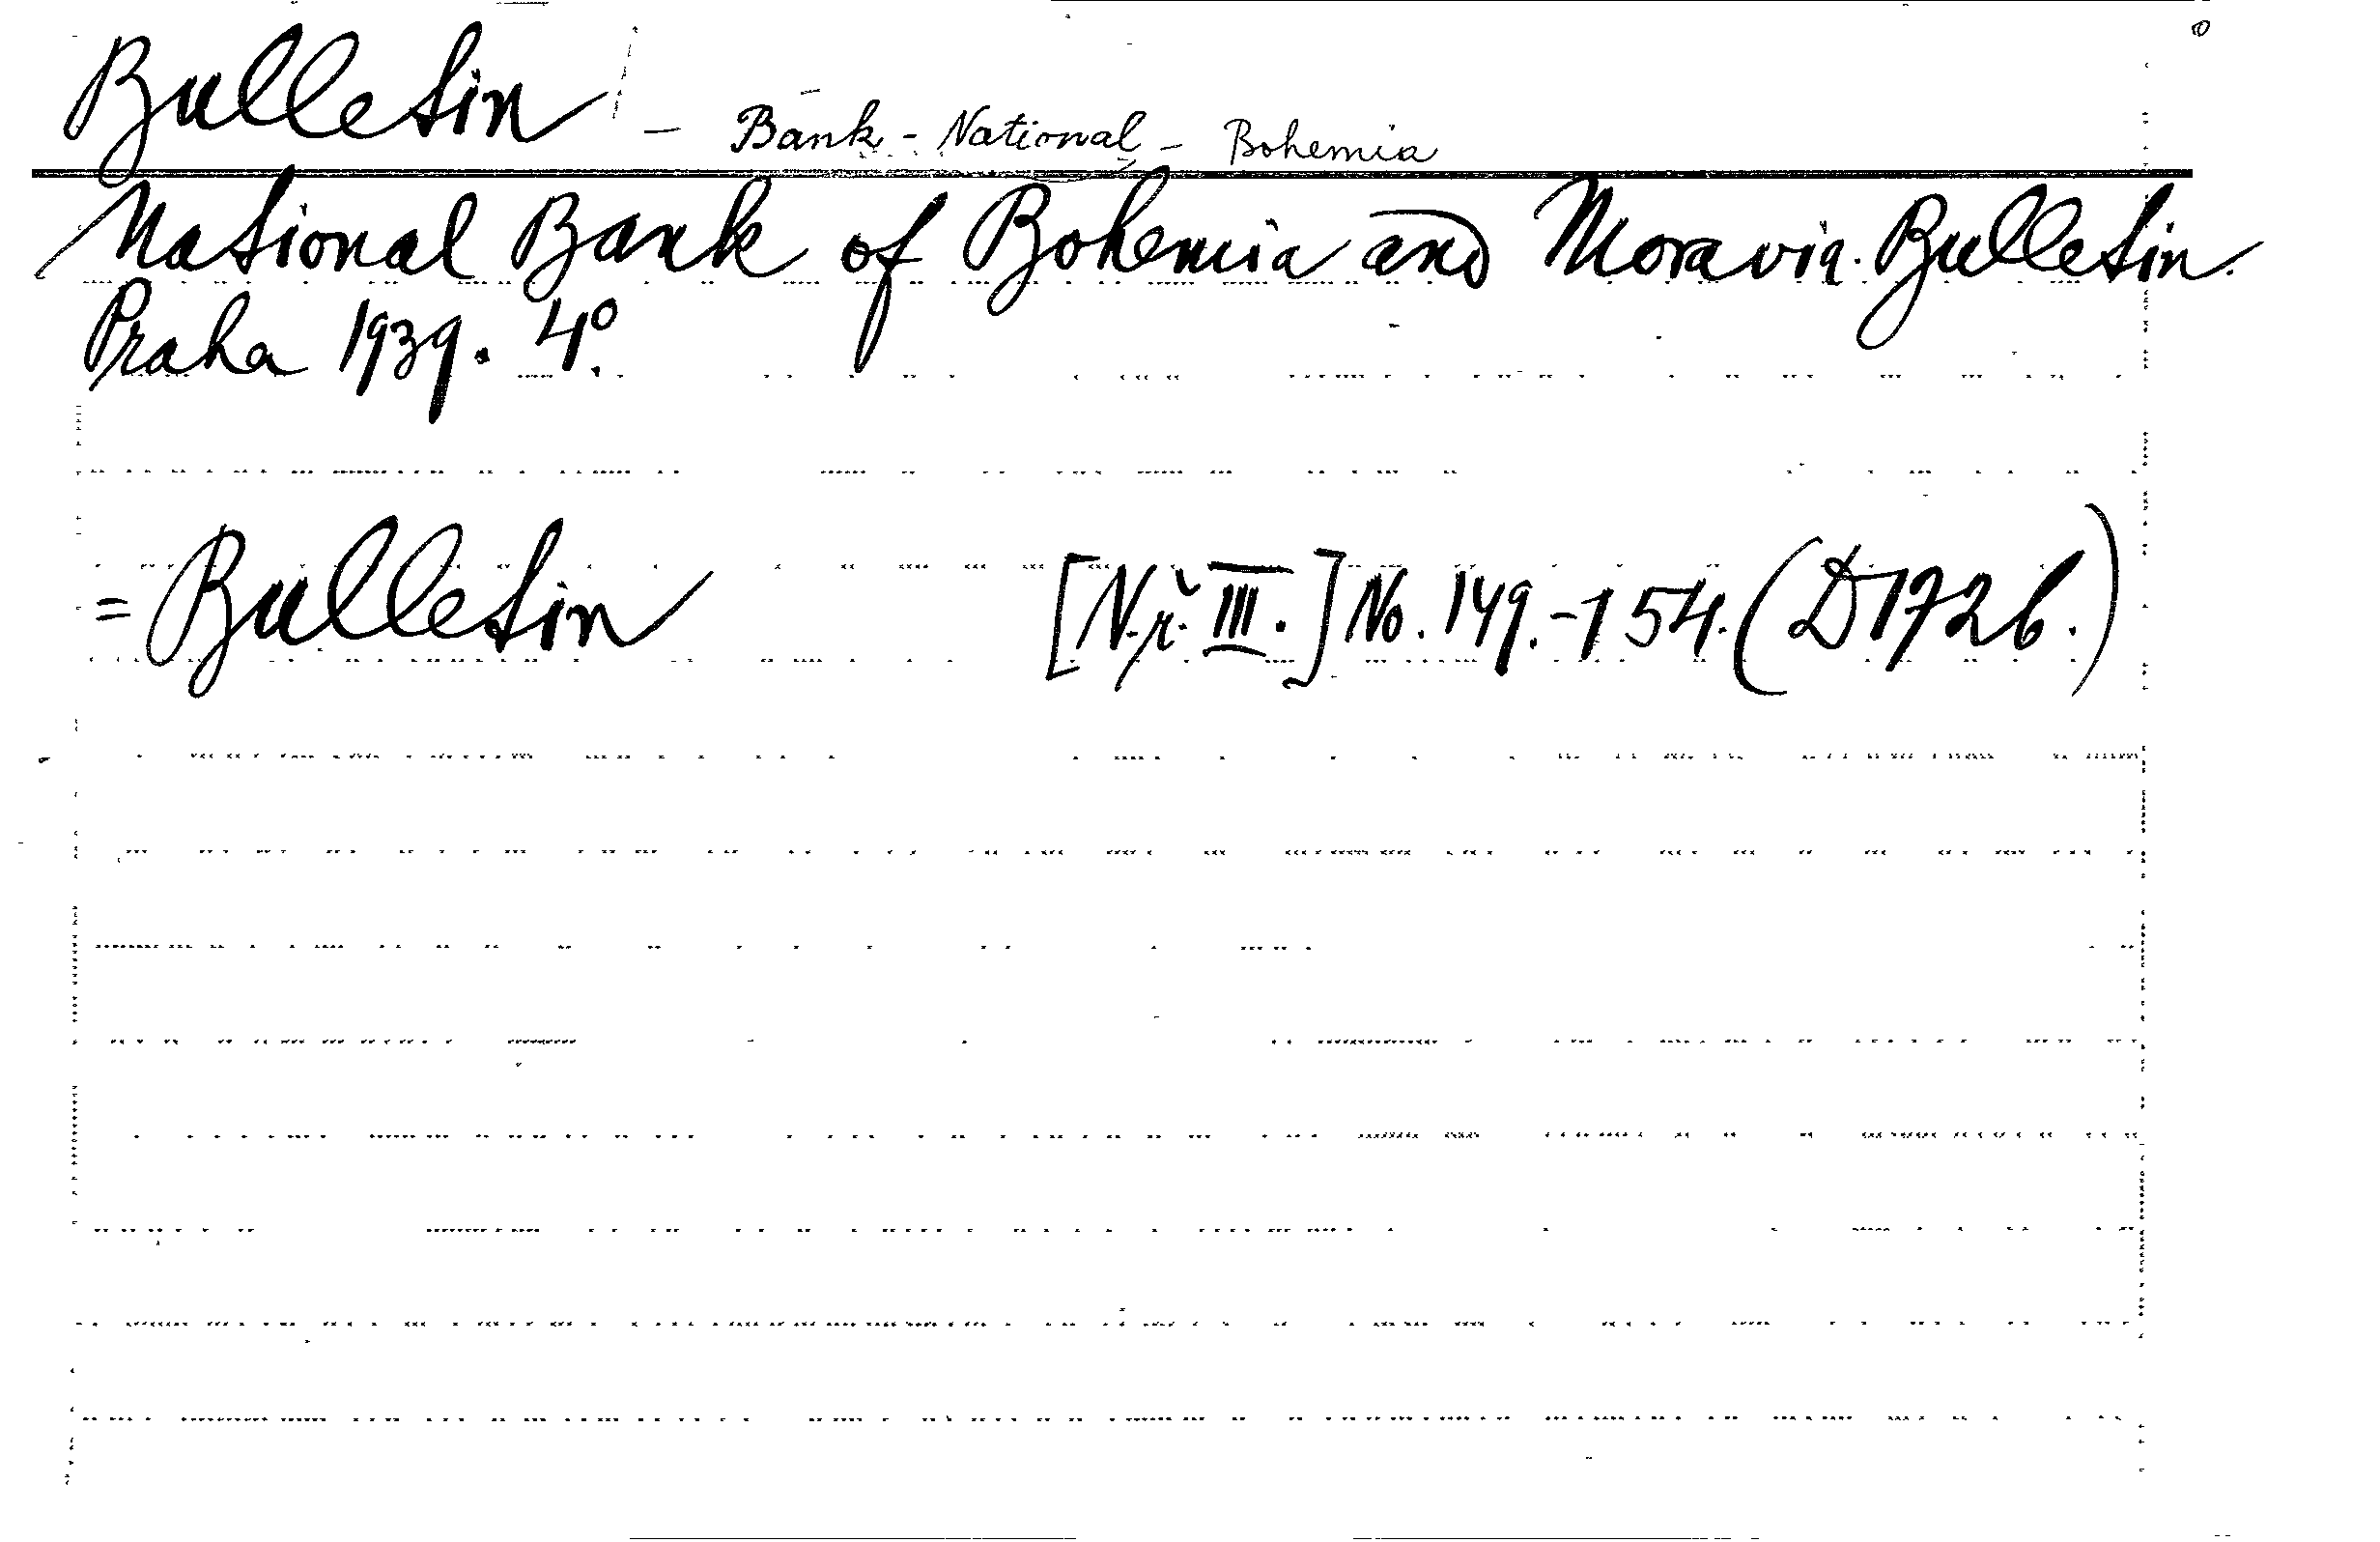 Bulletin - Bank - National - Bohemia
National Bank of Bohemia and Moravia. Bulletin.
Praha 1939. 4°.
= Bulletin [N.ř. III.] No. 149.-154. (D 1726.)